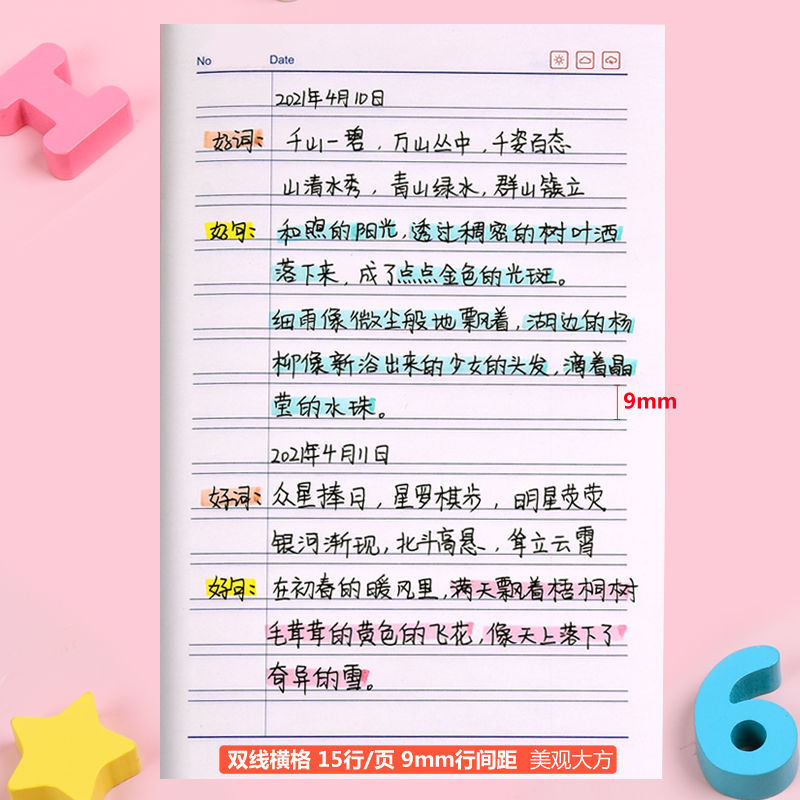 No Date
2021年4月10日
好词: 千山一碧，万山丛中，千姿百态
山清水秀，青山绿水，群山簇立
好句: 和煦的阳光，透过稠密的树叶洒
落下来，成了点点金色的光斑。
细雨像微尘般地飘着，湖边的杨
柳像新浴出来的少女的头发，滴着晶
莹的水珠。
9mm
2021年4月11日
好词: 众星捧日，星罗棋步，明星荧荧
银河渐现，北斗高悬，耸立云霄
好句: 在初春的暖风里，满天飘着梧桐树
毛茸茸的黄色的飞花，像天上落下了
奇异的雪。
双线横格 15行/页 9mm行间距 美观大方
6